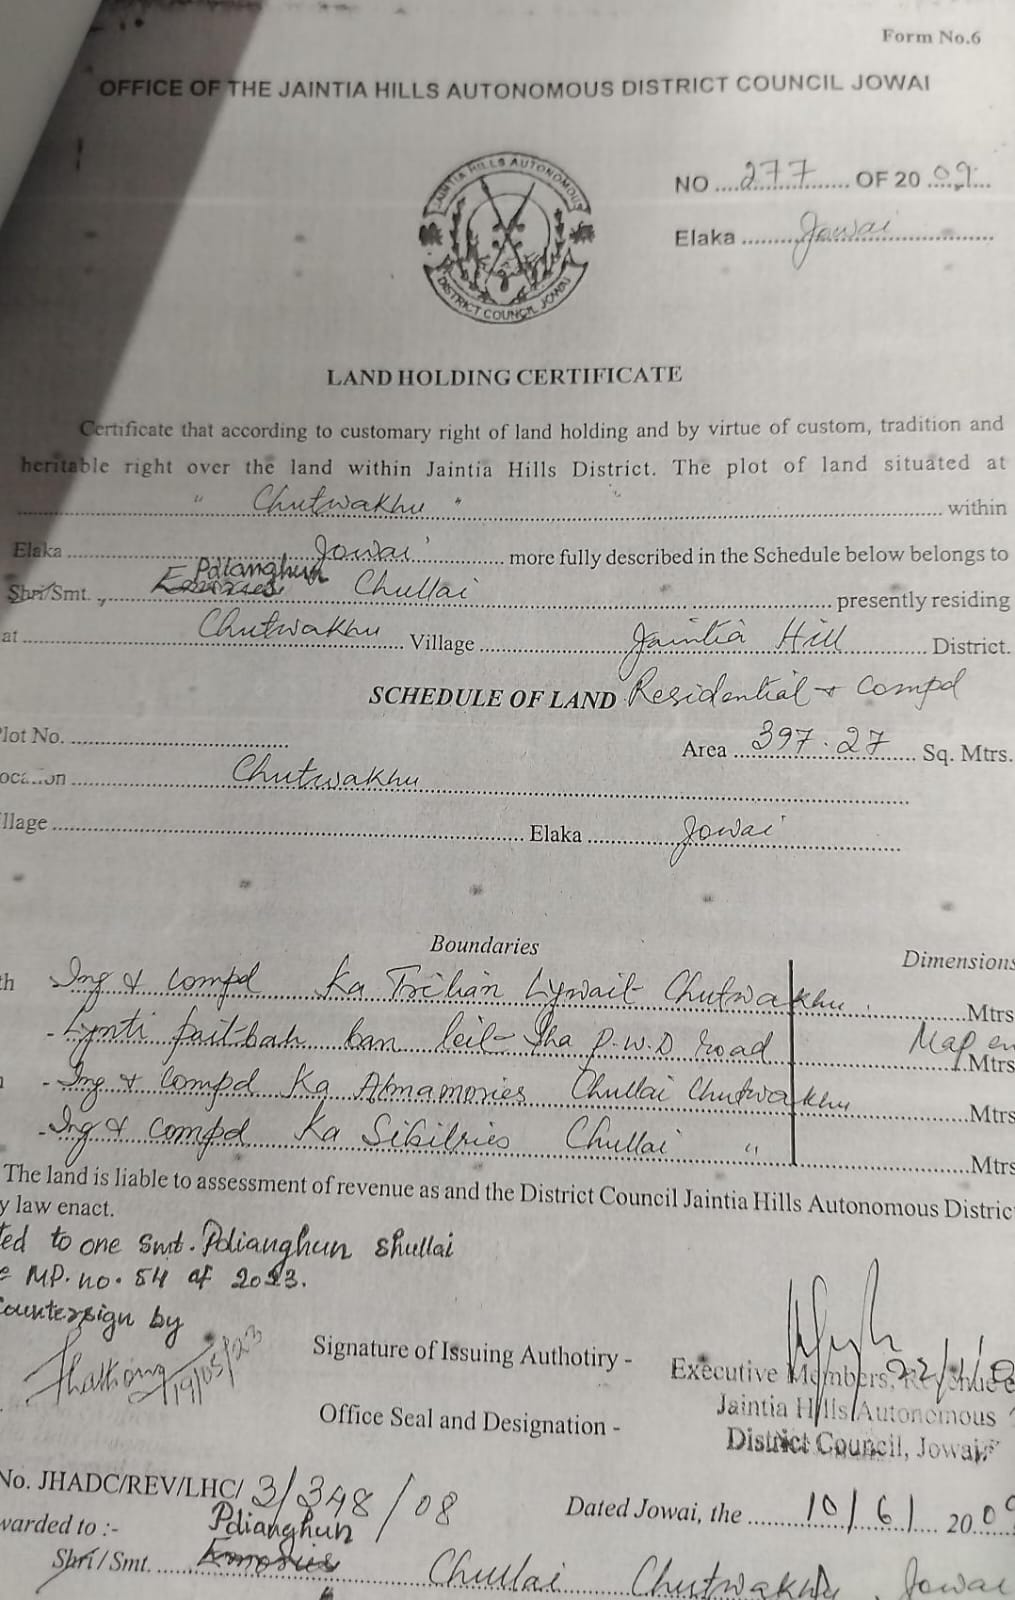 Form No.6
OFFICE OF THE JAINTIA HILLS AUTONOMOUS DISTRICT COUNCIL JOWAI
JAINTIA HILLS AUTONOMOUS
DISTRICT COUNCIL JOWAI
NO ....277.... OF 20 ..09...
Elaka ........Jowai........
LAND HOLDING CERTIFICATE
Certificate that according to customary right of land holding and by virtue of custom, tradition and
heritable right over the land within Jaintia Hills District. The plot of land situated at
" Chutwakhu " ........ within
Elaka ........ Jowai ........ more fully described in the Schedule below belongs to
Pdianghun
Shri/Smt. ........ Chullai ........ presently residing
at ........ Chutwakhu ........ Village ........ Jaintia Hill ........ District.
SCHEDULE OF LAND Residential & Compd
lot No. ........ Area ...397.27... Sq. Mtrs.
ocation ........ Chutwakhu ........
llage ........ Elaka ........ Jowai ........
Boundaries Dimensions
th Ing & Compd Ka Trilian Lywait Chutwakhu ........ Mtrs
- Lynti ban leit Sha P.W.D road Map en Mtrs
- Ing & Compd Ka Chullai Chutwakhu ........ Mtrs
- Ing & Compd Ka Sibilries Chullai " ........ Mtrs
The land is liable to assessment of revenue as and the District Council Jaintia Hills Autonomous District
y law enact.
ted to one Smt. Pdianghun Shullai
e MP. no. 54 of 2023.
Countersign by
19/05/23
Signature of Issuing Authotiry -
Executive Members,
Office Seal and Designation -
Jaintia Hills Autonomous
District Council, Jowai
No. JHADC/REV/LHC/ 3/348/08 Dated Jowai, the ........ 10/6/ .... 2009
warded to :-
Pdianghun
Shri/Smt. ........ Chullai Chutwakhu, Jowai